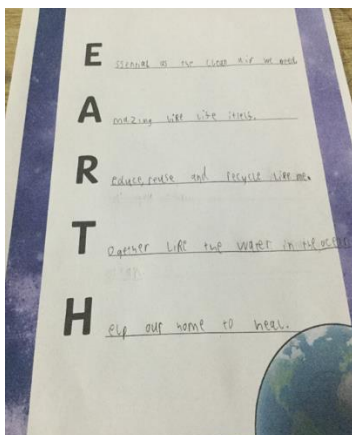 Essential as the clear air we need
Amazing like life itself.
Reduce, reuse and recycle like me.
Together like the water in the ocean
Help our home to heal.